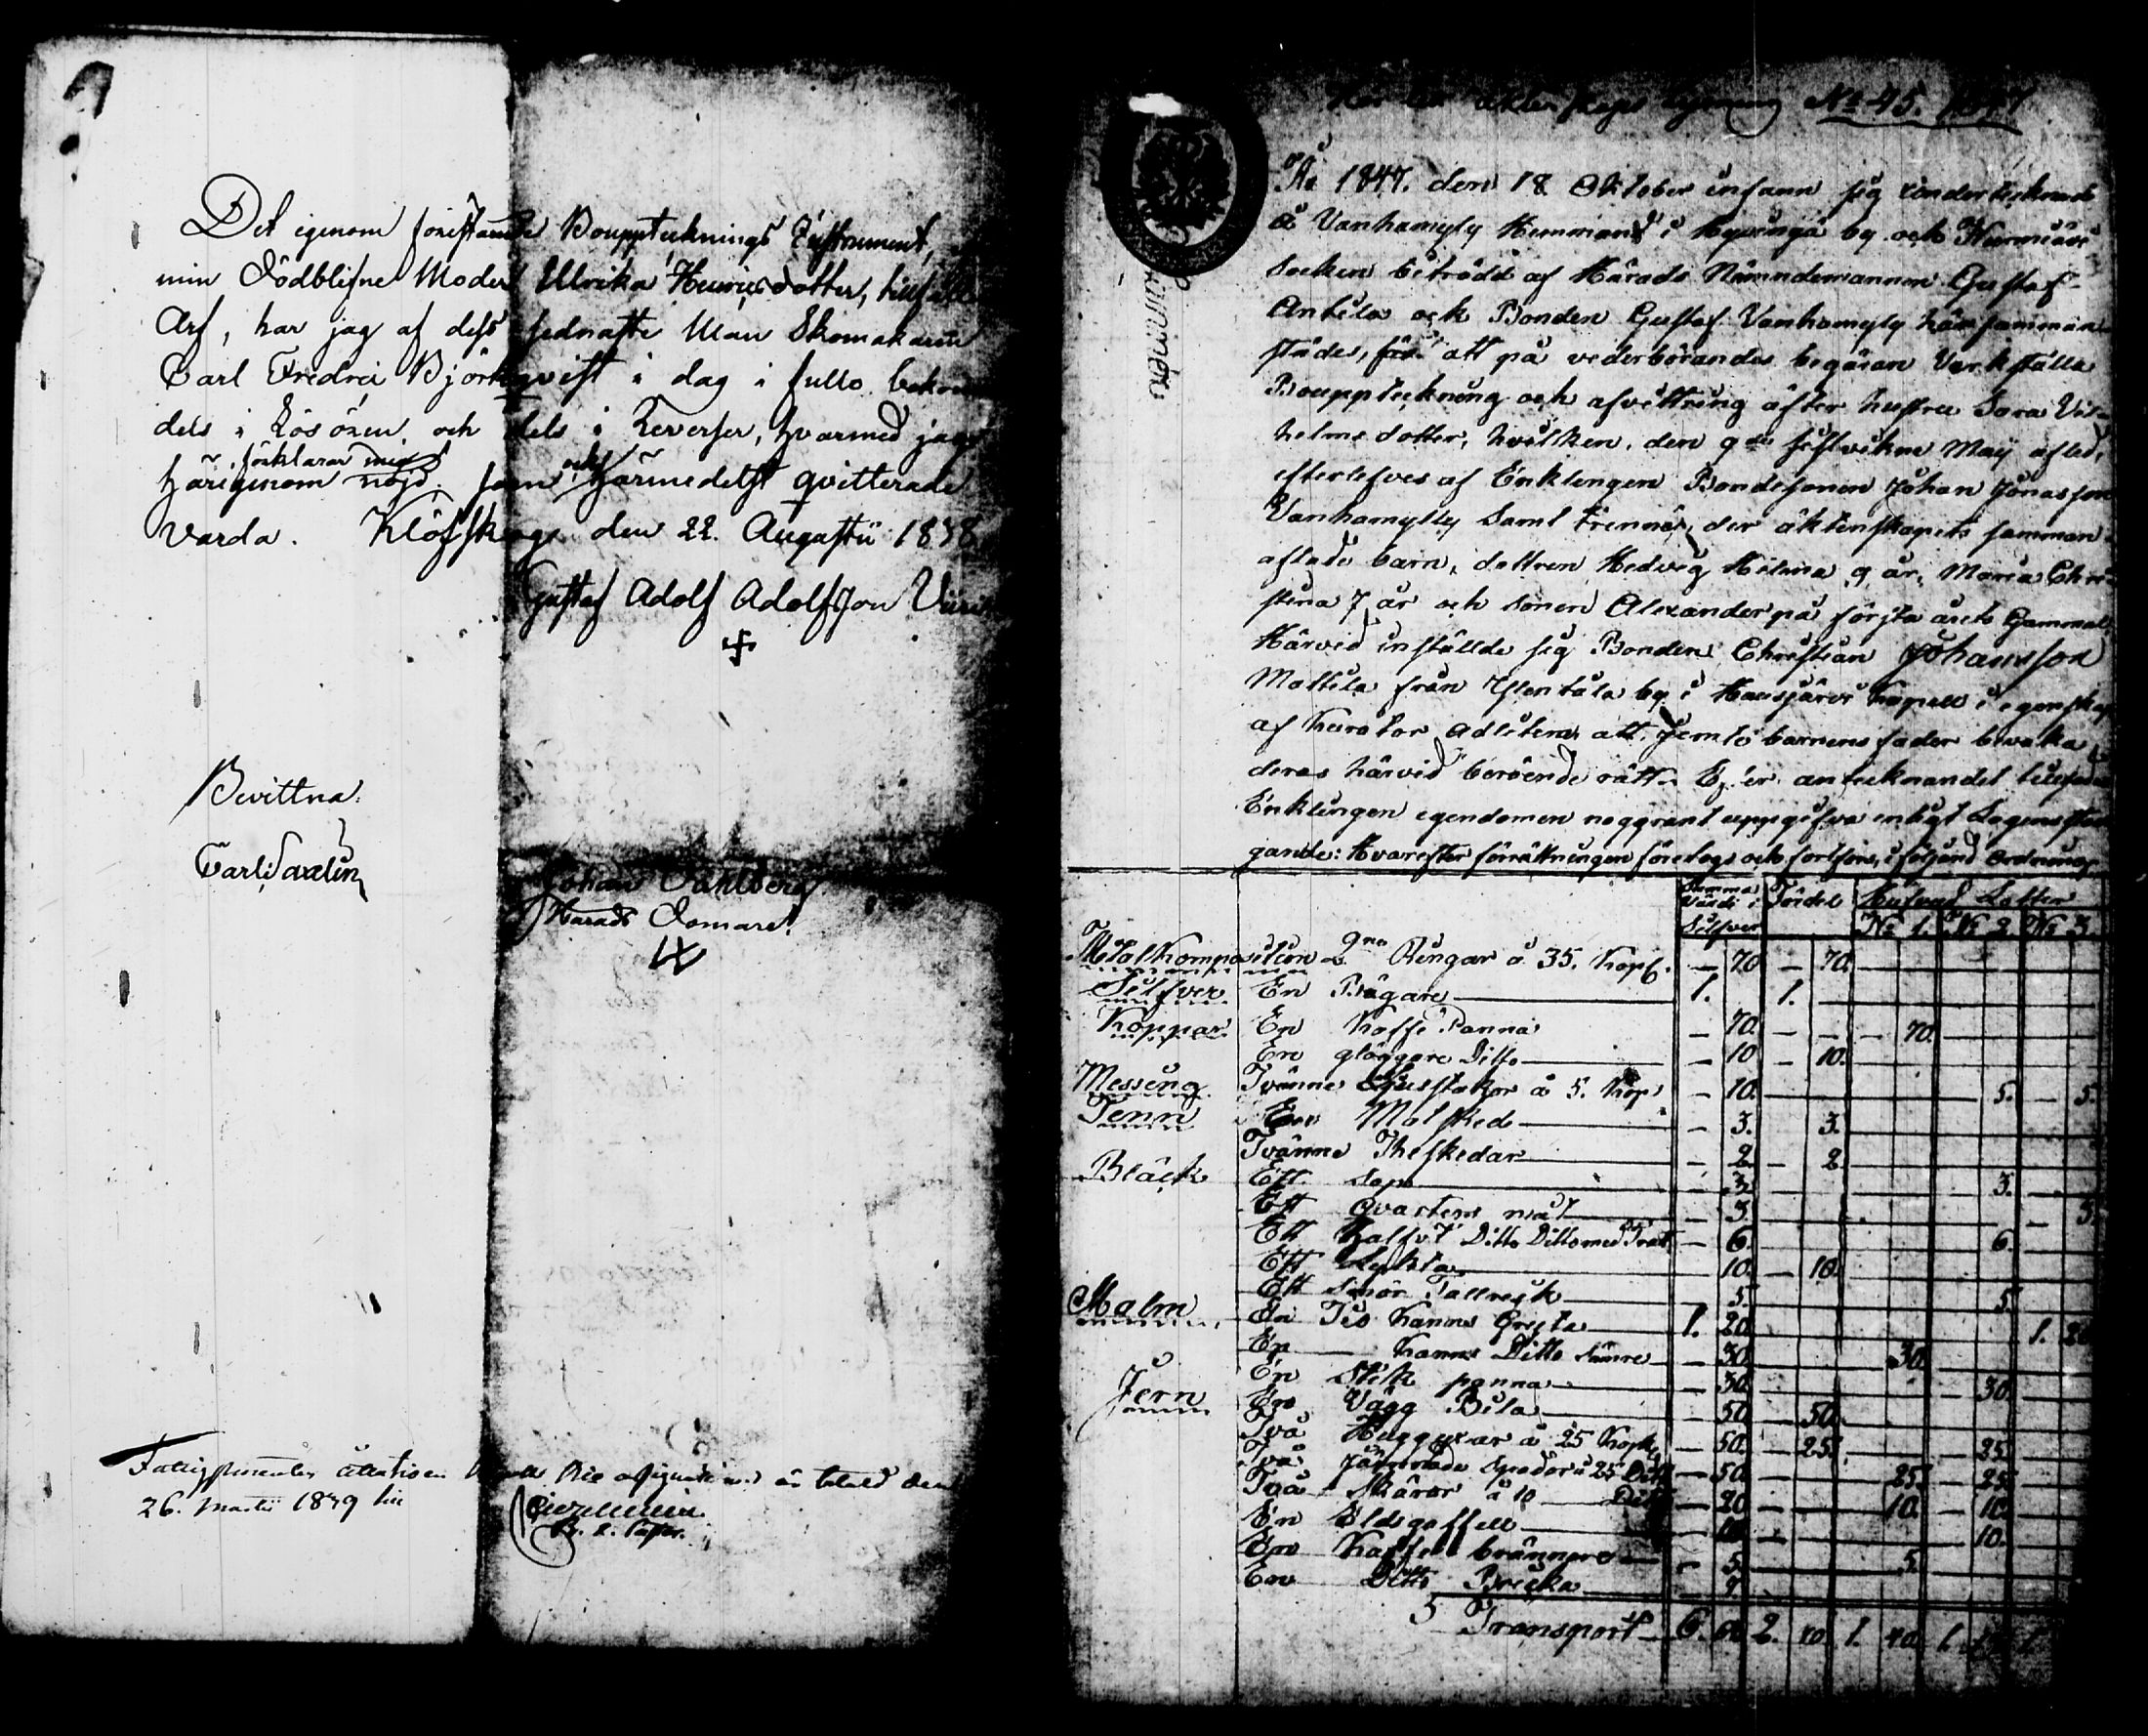 Det igenom förestående Bouppteknings Instrument,
min Dödblefne Moder Ulrika Henricsdotter, tillfallne
Arf, har jag af dess sednaste Man Skomakaren
Carl Fredric Björkqvist i dag i fullo bekommit
dels i Lösören, och dels i Reverser, hvarmed jag
förklarar mig
härigenom nöjd, som och härmedelst qvitterade
varda. Klöfskog den 22. Augustii 1838
Gustaf Adolf Adolfsson
Bevittna:
Carl Saxelin
Johan Dahlberg
Härads Domare
Fattigprocenten är betald den
26. Martii 1839
No 45. 1847
År 1847. den 18 Oktober infann sig undertecknad
å Vanhamyly Hemman i Hyvingä by och Nurmijärvi
Socken biträdd af Härads Nämndemannen Gustaf
Antila och Bonden Gustaf Vanhamyly här samman
städes, för att på vederbörandes begäran Verkställa
Bouppteckning och afvittring äfter hustru Sara Vil-
helms dotter, hvilken, den 9de sistvikne Maij afled,
efterlefves af Enklingen Bondesonen Johan Jonasson
Vanhamyly Samt trenne, der äktenskapets samman
aflade barn, dottren Hedvig Helena 9 år, Maria Chri-
stina 7 år och sonen Alexander på första året Gammal
Härvid inställde sig Bonden Christian Johansson
Mattila från by i Hausjärvi Kapell i egenskap
af Kurator adlitem, att jemte barnens fader bevaka
deras härvid beroende rätt. Enklingen egendomen noggrant uppgifva enligt Lagens stad-
gande: Hvarefter förrättningen företogs och fortfors, i följand Ordning,
Summa Värde i Silfver Fördel Hufvud Lotter
No 1. No 2. No 3.
Metalkomposition 2ne Ringar á 35. Kop. — 70 — 70.
Silfver En Bägare 1. 1.
Koppar En Kaffe Panna — 70. — 70.
En Ditto — 10 — 10.
Messing Tvänne Ljusstakar á 5. Kop. — 10. 5. — 5.
Tenn En Matsked — 3. 3.
Tvänne Theskedar — 2. — 2
Bläck Ett — 3. 3.
Ett Qvarters mått — 3. — 3.
Ett Halfv Ditto Ditto med — 6. 6.
Ett Lykta 10. — 10.
Ett Smör Tallrejk 5. 5
Malm En Tio Kanns Gryta 1. 20 1. 20
En Kanns Ditto sämre — 30. 30.
Jern En Stek panna — 30. — 30.
En Vägg Bila — 50 — 50.
Två Huggyxar á 25 Kopk — 50. — 25. 25.
Två spador á 25 Ditto — 50. 25 — 25.
Två Skäror á 10 Ditto — 20 — 10. — 10.
En Eldsgaffell 10 — 10.
En Kaffe brännare — 5. 5.
En Ditto Bricka
Transport 6. 2. 40 1. 40 1.